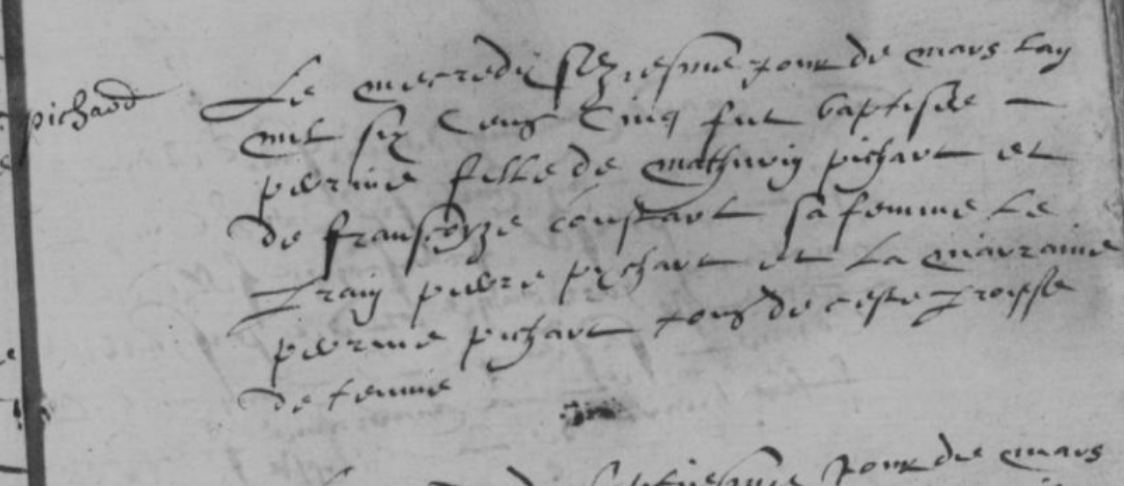 pichard
Le mecredy seziesme jour de mars lan
mil six cens cinq fut baptisée
perrine fille de mathurin pichart et
de fransoyze constart sa femme le
parain pierre pichart et la marraine
perrine pichart tous de ceste
de
jour de mars